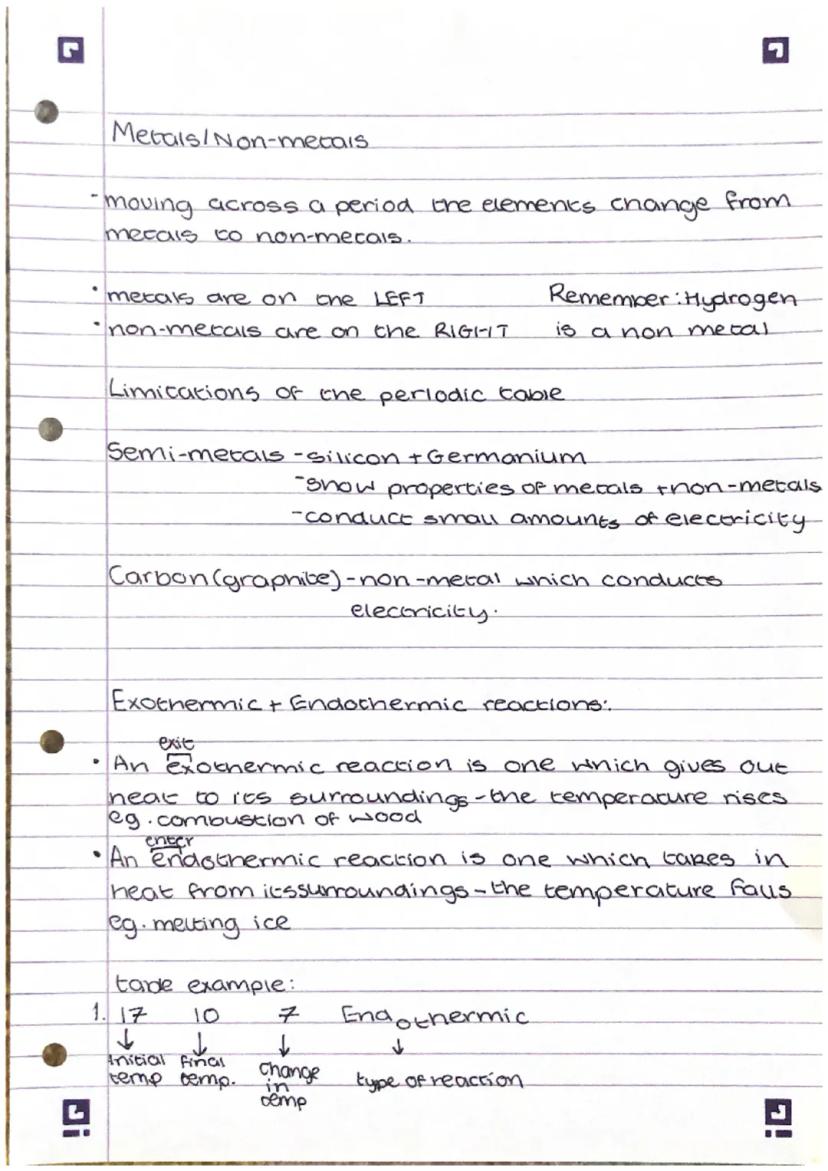 Metals/Non-metals
- moving across a period the elements change from
metals to non-metals.
• metals are on the LEFT Remember: Hydrogen
• non-metals are on the RIGHT is a non metal
Limitations of the periodic table
Semi-metals - silicon + Germanium
- show properties of metals + non-metals
- conduct small amounts of electricity
Carbon (graphite) - non-metal which conducts
electricity.
Exothermic + Endothermic reactions:
exit
• An exothermic reaction is one which gives out
heat to its surroundings - the temperature rises
eg. combustion of wood
enter
• An endothermic reaction is one which takes in
heat from its surroundings - the temperature falls
eg. melting ice
table example:
1. 17 10 7 Endothermic
↓ ↓ ↓ ↓
Initial final change type of reaction
temp temp. in
temp